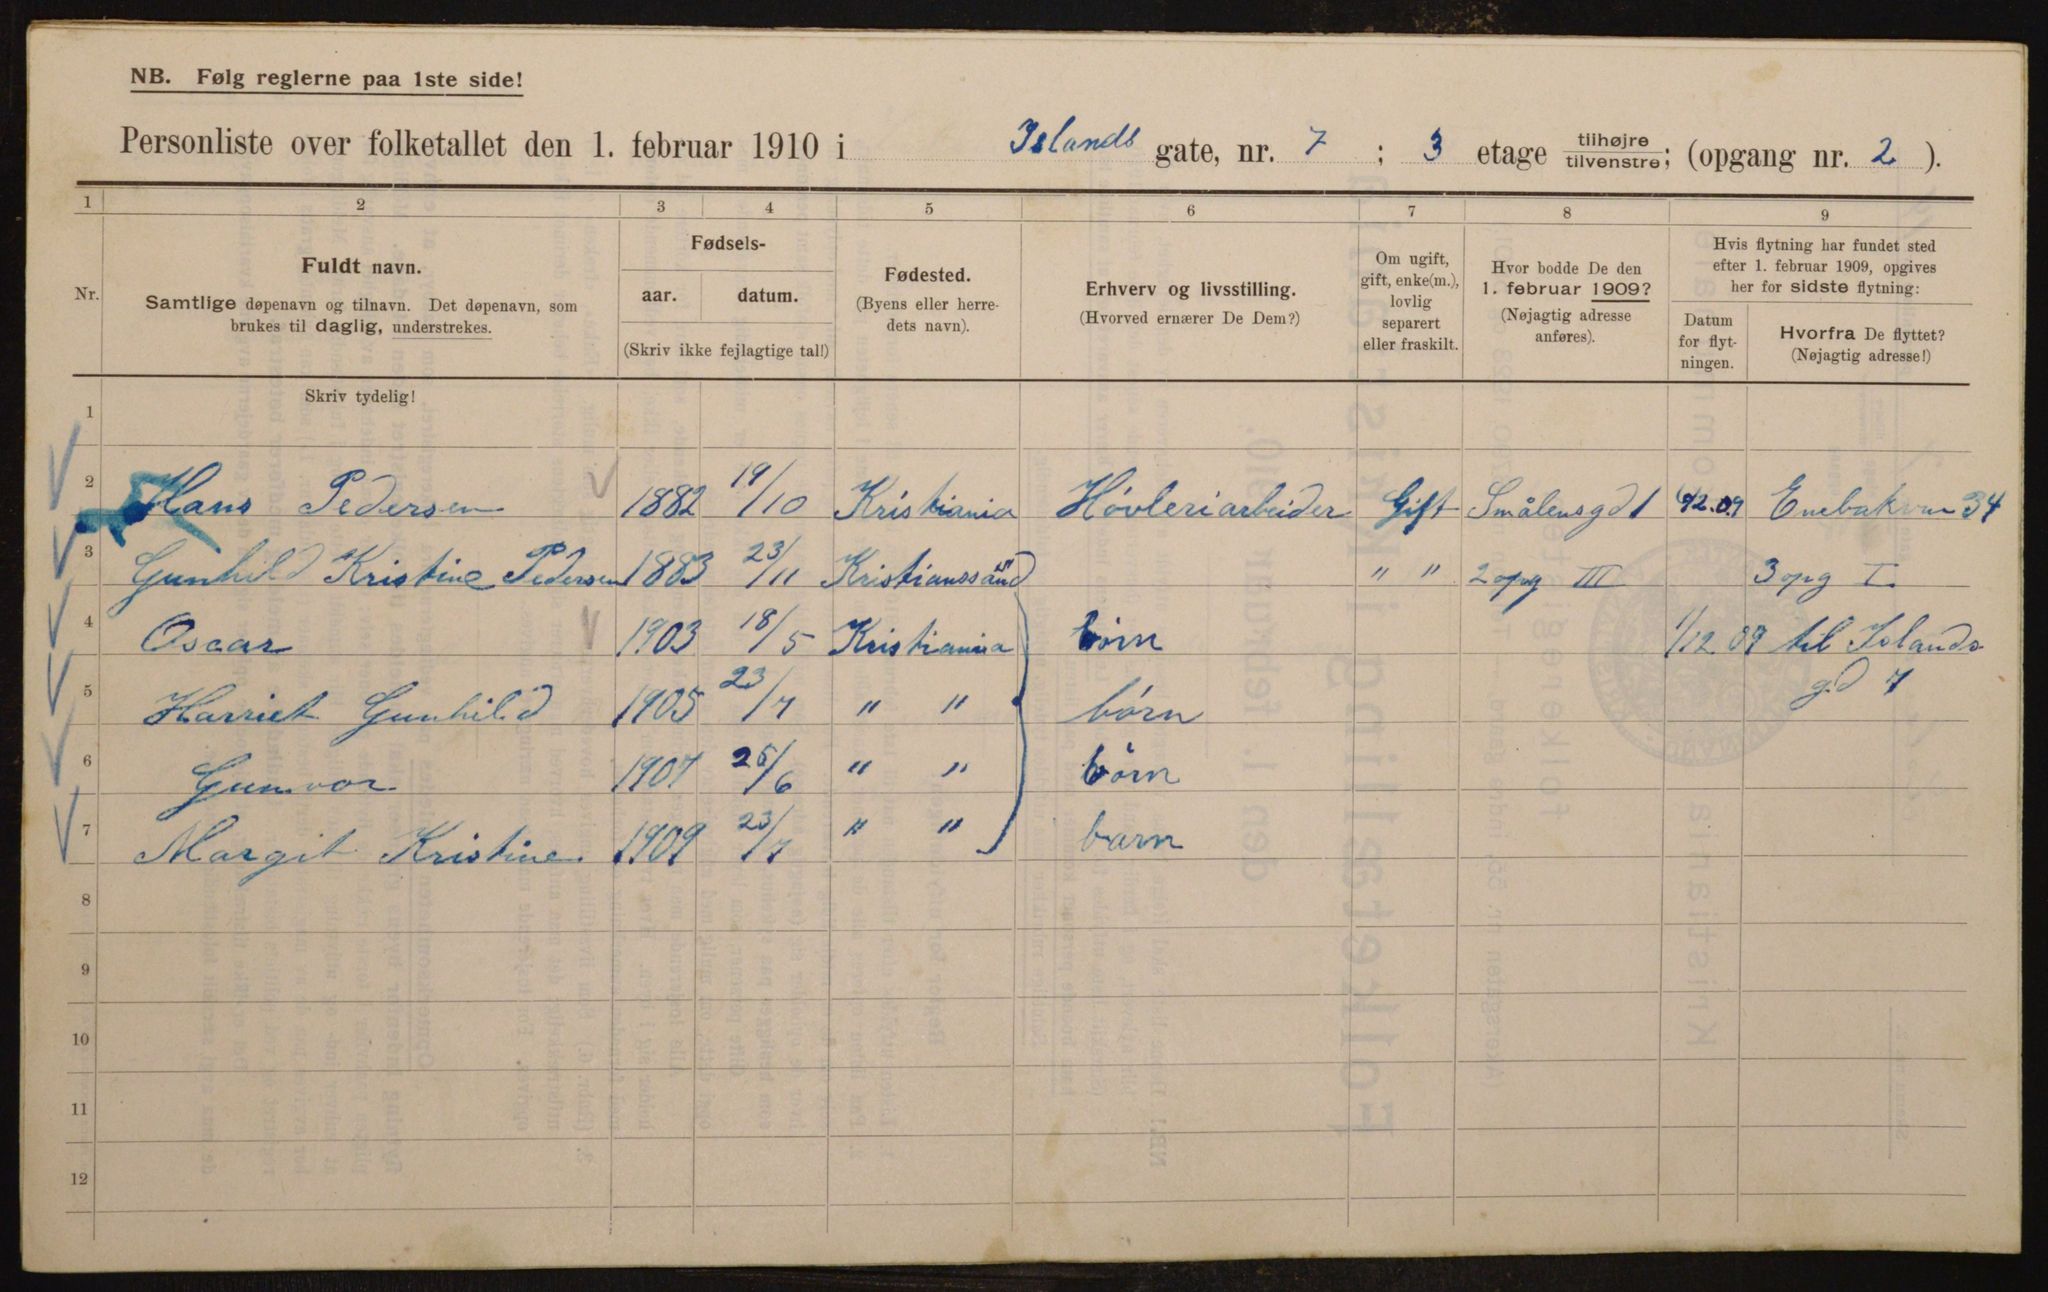 NB. Følg reglerne paa 1ste side!
Personliste over folketallet den 1. februar 1910 i Islands gate, nr. 7 ; 3 etage tilhøjre tilvenstre; (opgang nr. 2 ).
1 2 3 4 5 6 7 8 9
Nr.
Fuldt navn.
Samtlige døpenavn og tilnavn. Det døpenavn, som
brukes til daglig, understrekes.
Fødsels-
aar. datum.
(Skriv ikke fejlagtige tal!)
Fødested.
(Byens eller herre-
dets navn).
Erhverv og livsstilling.
(Hvorved ernærer De Dem?)
Om ugift,
gift, enke(m.),
lovlig
separert
eller fraskilt.
Hvor bodde De den
1. februar 1909?
(Nøjagtig adresse
anføres).
Hvis flytning har fundet sted
efter 1. februar 1909, opgives
her for sidste flytning:
Datum
for flyt-
ningen.
Hvorfra De flyttet?
(Nøjagtig adresse!)
Skriv tydelig!
1
2 Hans Pedersen 1882 19/10 Kristiania Hóvleriarbeider Gift Smålensgd 1 1/12.09 Enebakvn 34
3 Gunhild Kristine Pedersen 1883 23/11 Kristianssand " " 2 opg III 3 opg I
4 Oscar 1903 18/5 Kristiania børn 1/12 09 til Islands
gd 7
5 Harriet Gunhild 1905 23/7 " " børn
6 Gunvor 1907 25/6 " " børn
7 Margit Kristine 1909 23/7 " " barn
8
9
10
11
12